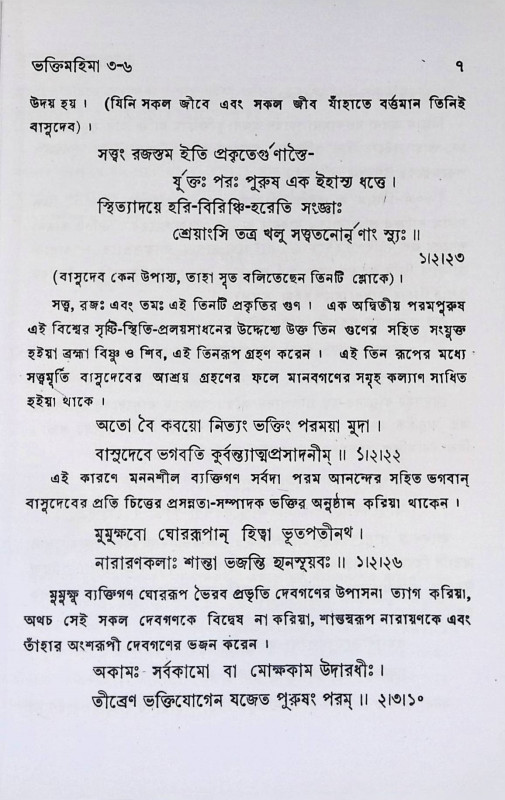 ভক্তিমহিমা ৩-৬ ৭
উদয় হয়। (যিনি সকল জীবে এবং সকল জীব যাঁহাতে বর্ত্তমান তিনিই
বাসুদেব)।
সত্ত্বং রজস্তম ইতি প্রকৃতের্গুণাস্তৈ-
র্যুক্তঃ পরঃ পুরুষ এক ইহাস্য ধত্তে।
স্থিত্যাদয়ে হরি-বিরিঞ্চি-হরেতি সংজ্ঞাঃ
শ্রেয়াংসি তত্র খলু সত্ত্বতনোর্নৃণাং স্যুঃ॥
১।২।২৩
(বাসুদেব কেন উপাস্য, তাহা সূত বলিতেছেন তিনটি শ্লোকে)।
সত্ত্ব, রজঃ এবং তমঃ এই তিনটি প্রকৃতির গুণ। এক অদ্বিতীয় পরমপুরুষ
এই বিশ্বের সৃষ্টি-স্থিতি-প্রলয়সাধনের উদ্দেশ্যে উক্ত তিন গুণের সহিত সংযুক্ত
হইয়া ব্রহ্মা বিষ্ণু ও শিব, এই তিনরূপ গ্রহণ করেন। এই তিন রূপের মধ্যে
সত্ত্বমূর্তি বাসুদেবের আশ্রয় গ্রহণের ফলে মানবগণের সমূহ কল্যাণ সাধিত
হইয়া থাকে।
অতো বৈ কবয়ো নিত্যং ভক্তিং পরময়া মুদা।
বাসুদেবে ভগবতি কুর্বন্ত্যাত্মপ্রসাদনীম্॥ ১।২।২২
এই কারণে মননশীল ব্যক্তিগণ সর্বদা পরম আনন্দের সহিত ভগবান্
বাসুদেবের প্রতি চিত্তের প্রসন্নতা-সম্পাদক ভক্তির অনুষ্ঠান করিয়া থাকেন।
মুমুক্ষবো ঘোররূপান্ হিত্বা ভূতপতীনথ।
নারারণকলাঃ শান্তা ভজন্তি হ্যনসূয়বঃ॥ ১।২।২৬
মুমুক্ষু ব্যক্তিগণ ঘোররূপ ভৈরব প্রভৃতি দেবগণের উপাসনা ত্যাগ করিয়া,
অথচ সেই সকল দেবগণকে বিদ্বেষ না করিয়া, শান্তস্বরূপ নারায়ণকে এবং
তাঁহার অংশরূপী দেবগণের ভজন করেন।
অকামঃ সর্বকামো বা মোক্ষকাম উদারধীঃ।
তীব্রেণ ভক্তিযোগেন যজেত পুরুষং পরম্॥ ২।৩।১০